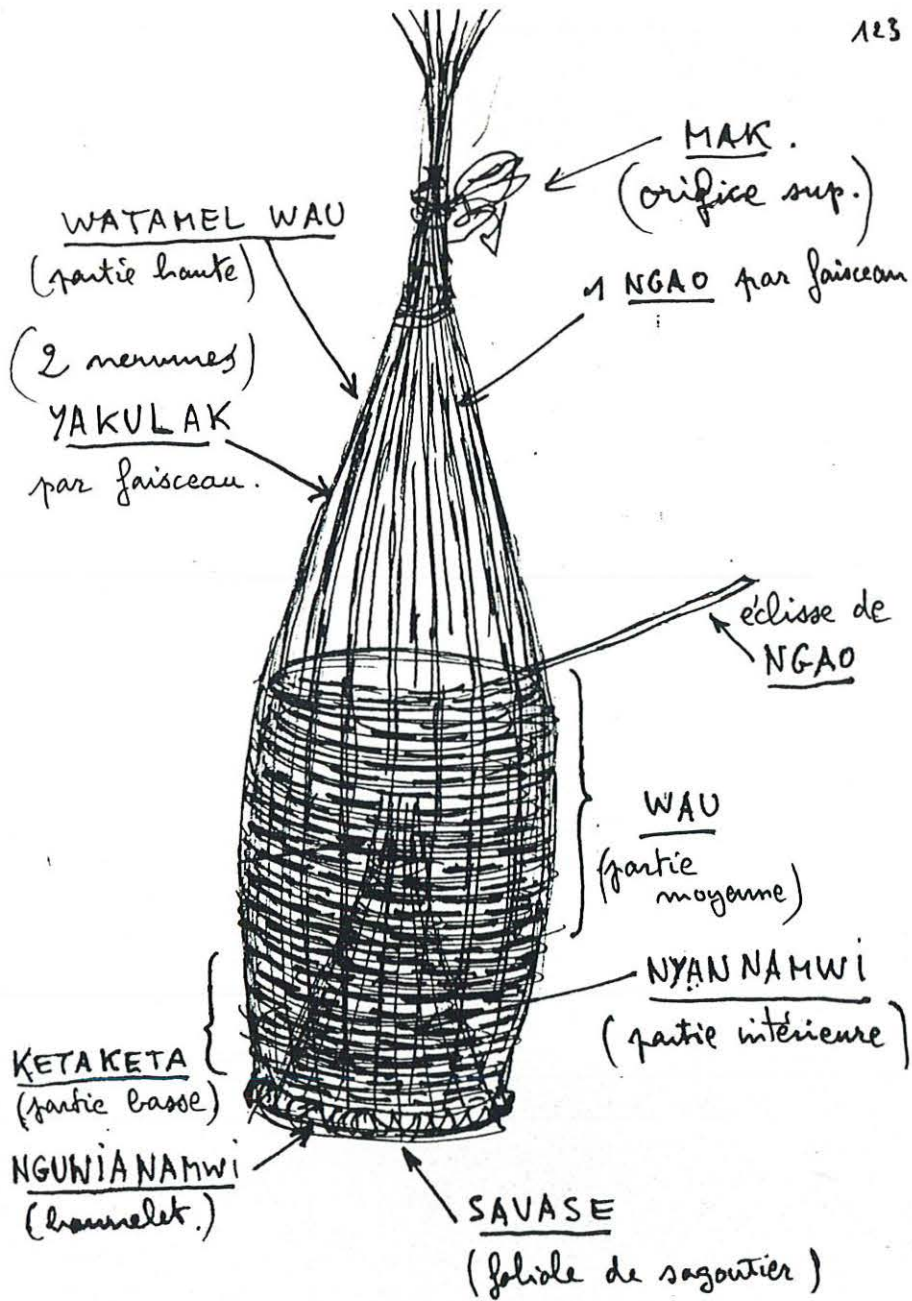 123
MAK.
(orifice sup.)
WATAMEL WAU
(partie haute)
1 NGAO par faisceau
(2 nervures)
YAKULAK
par faisceau.
éclisse de
NGAO
WAU
(partie
moyenne)
NYAN NAMWI
(partie intérieure)
KETAKETA
(partie basse)
NGUWIANAMWI
(bourrelet.)
SAVASE
(foliole de sagoutier)